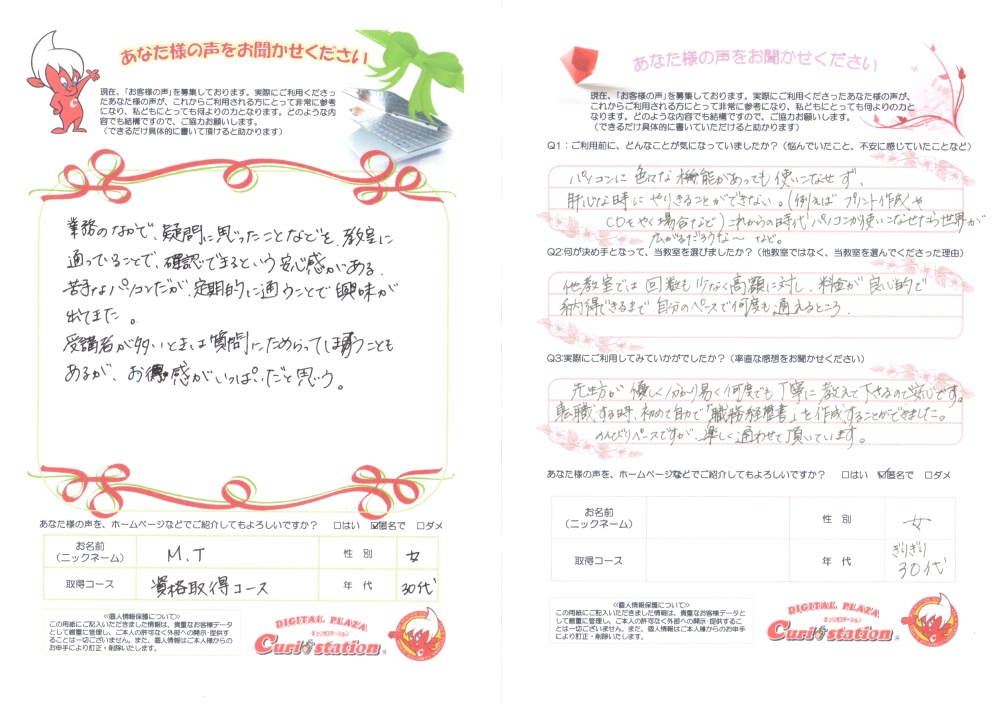 あなた様の声をお聞かせください
現在、「お客様の声」を募集しております。実際にご利用くださっ
たあなた様の声が、これからご利用される方にとって非常に参考
になり、私どもにとっても何よりの力となります。どのような内
容でも結構ですので、ご協力お願いします。
（できるだけ具体的に書いて頂けると助かります）
業務のなかで、疑問に思ったことなどを、教室に
通っていることで、確認できるという安心感がある。
苦手なパソコンだが、定期的に通うことで興味が
出てきた。
受講者が多いときは質問にためらってしまうことも
あるが、お得感がいっぱいだと思う。
あなた様の声を、ホームページなどでご紹介してもよろしいですか？ □はい ☑匿名で □ダメ
お名前
（ニックネーム） M.T 性 別 女
取得コース 資格取得コース 年 代 30代
≪個人情報保護について≫
この用紙にご記入いただきました情報は、貴重なお客様データと
して厳重に管理し、ご本人の許可なく外部への開示・提供す
ることは一切ございません。また、個人情報はご本人様からの
お申手により訂正・削除いたします。
DIGITAL PLAZA
キュリオステーション
Curio station
あなた様の声をお聞かせください
現在、「お客様の声」を募集しております。実際にご利用くださっ
たあなた様の声が、
これからご利用される方にとって非常に参考になり、私どもにとっても何よりの力と
なります。どのような内容でも結構ですので、ご協力お願いします。
（できるだけ具体的に書いていただけると助かります）
Q1：ご利用前に、どんなことが気になっていましたか？（悩んでいたこと、不安に感じていたことなど）
パソコンに色々な機能があっても使いこなせず、
肝心な時にやりきることができない。（例えばプリント作成や
CDをやく場合など）これからの時代パソコンが使いこなせたら世界が
広がるだろうな〜 など。
Q2:何が決め手となって、当教室を選びましたか？（他教室ではなく、当教室を選んでくださった理由）
他教室では回数も少なく高額に対し、料金が良心的で
納得できるまで自分のペースで何度も通えるところ。
Q3:実際にご利用してみていかがでしたか？（率直な感想をお聞かせください）
先生方が優しく分かり易く何度でも丁寧に教えて下さるので安心です。
転職する時、初めて自力で「職務経歴書」を作成することができました。
のんびりペースですが、楽しく通わせて頂いています。
あなた様の声を、ホームページなどでご紹介してもよろしいですか？ □はい ☑匿名で □ダメ
お名前
（ニックネーム） 性 別 女
取得コース 年 代 ぎりぎり
30代
≪個人情報保護について≫
この用紙にご記入いただきました情報は、貴重なお客様データと
して厳重に管理し、ご本人の許可なく外部への開示・提供するこ
とは一切ございません。また、個人情報はご本人様からのお申手
により訂正・削除いたします。
DIGITAL PLAZA
キュリオステーション
Curio station